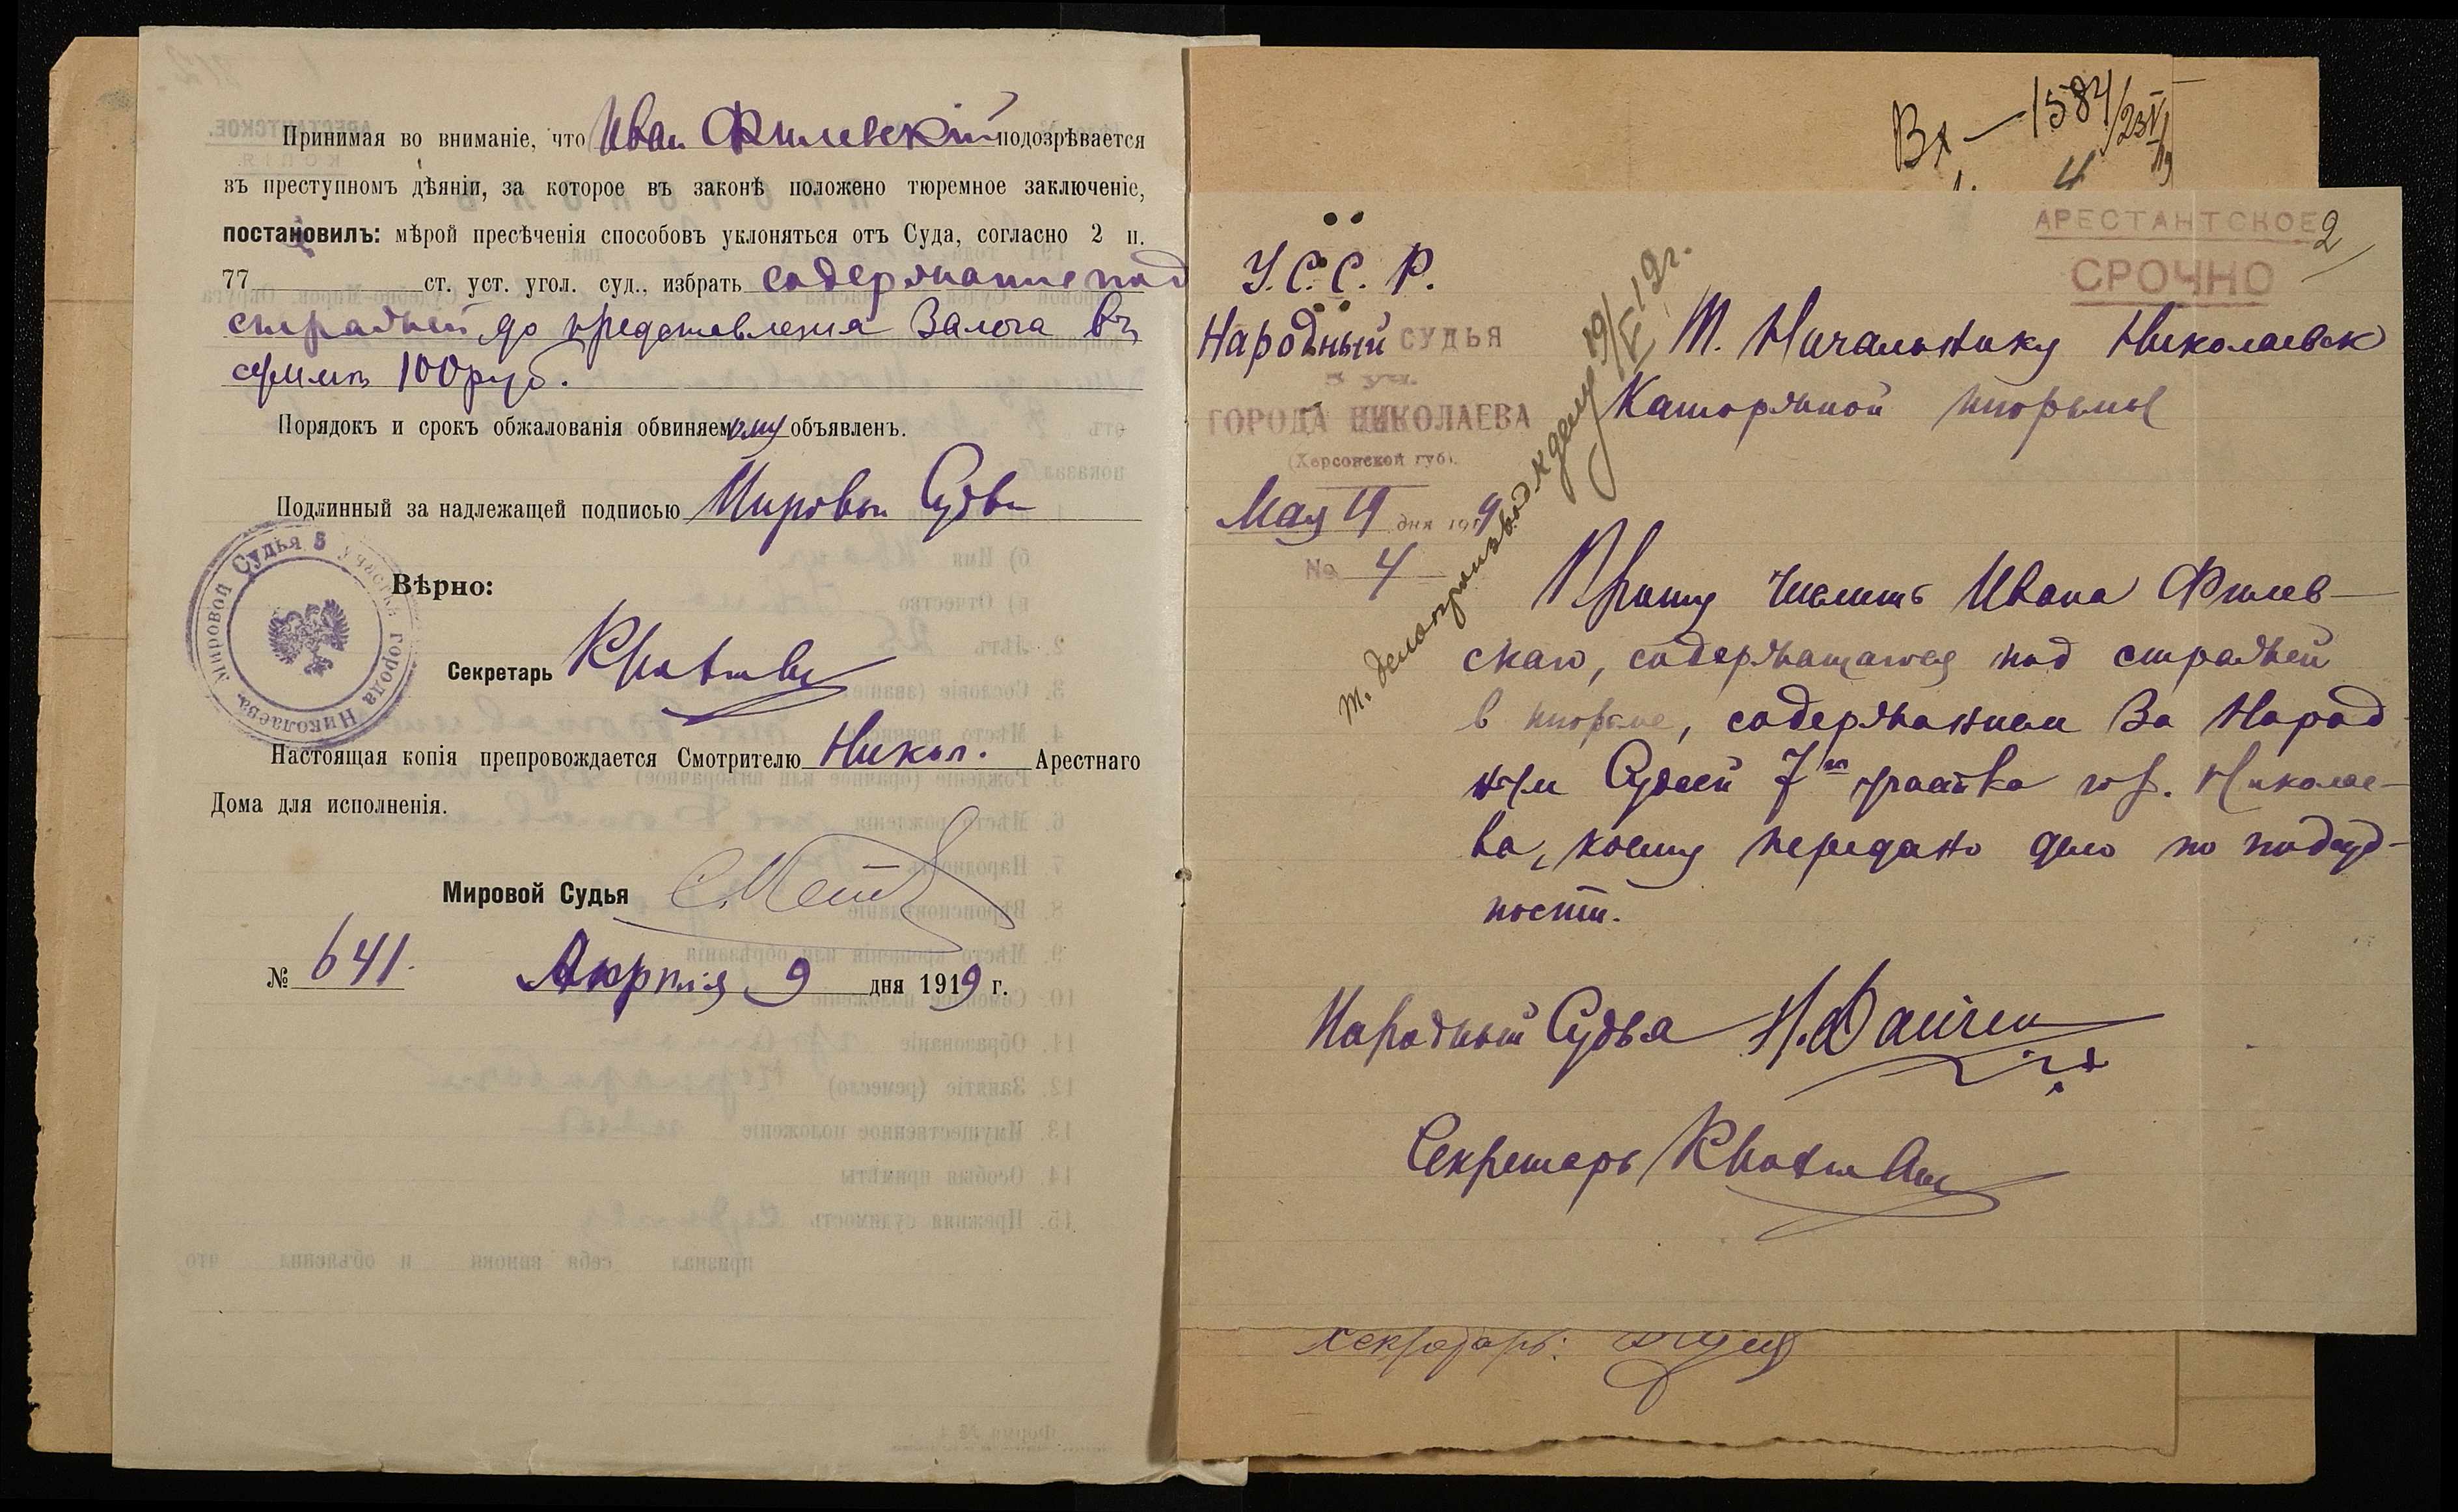 Принимая во вниманіе, что Иван Филевскій подозрѣвается
въ преступномъ дѣяніи, за которое въ законѣ положено тюремное заключеніе,
постановилъ: мѣрой пресѣченія способовъ уклоняться отъ Суда, согласно 2 п.
77 ст. уст. угол. суд., избрать содержание под
стражей до представления залога въ
суммѣ 100 руб.
Порядокъ и срокъ обжалованія обвиняемому объявленъ.
Подлинный за надлежащей подписью Мировой Судья
Мировой Судья 5 участка города Николаева
Вѣрно:
Секретарь
Настоящая копія препровождается Смотрителю Никол. Арестнаго
Дома для исполненія.
Мировой Судья
№ 641. Апрѣля 9 дня 1919 г.
Вх — 1584/23 V/19
4
АРЕСТАНТСКОЕ 2
СРОЧНО
У.С.С.Р.
Народный СУДЬЯ
5 уч.
ГОРОДА НИКОЛАЕВА
(Херсонской губ.)
Мая 19 дня 1919
№ 4
т. делопроизвод к делу 19/V 19г.
Т. Начальнику Николаевск
Каторжной тюрьмы
Прошу числить Ивана Филев-
скаго, содержащагося под стражей
в тюрьме, содержанием за Народ-
ным Судьей 7го участка гор. Николае-
ва, коему передано дело по подсуд-
ности.
Народный Судья
Секретарь
секретарь: